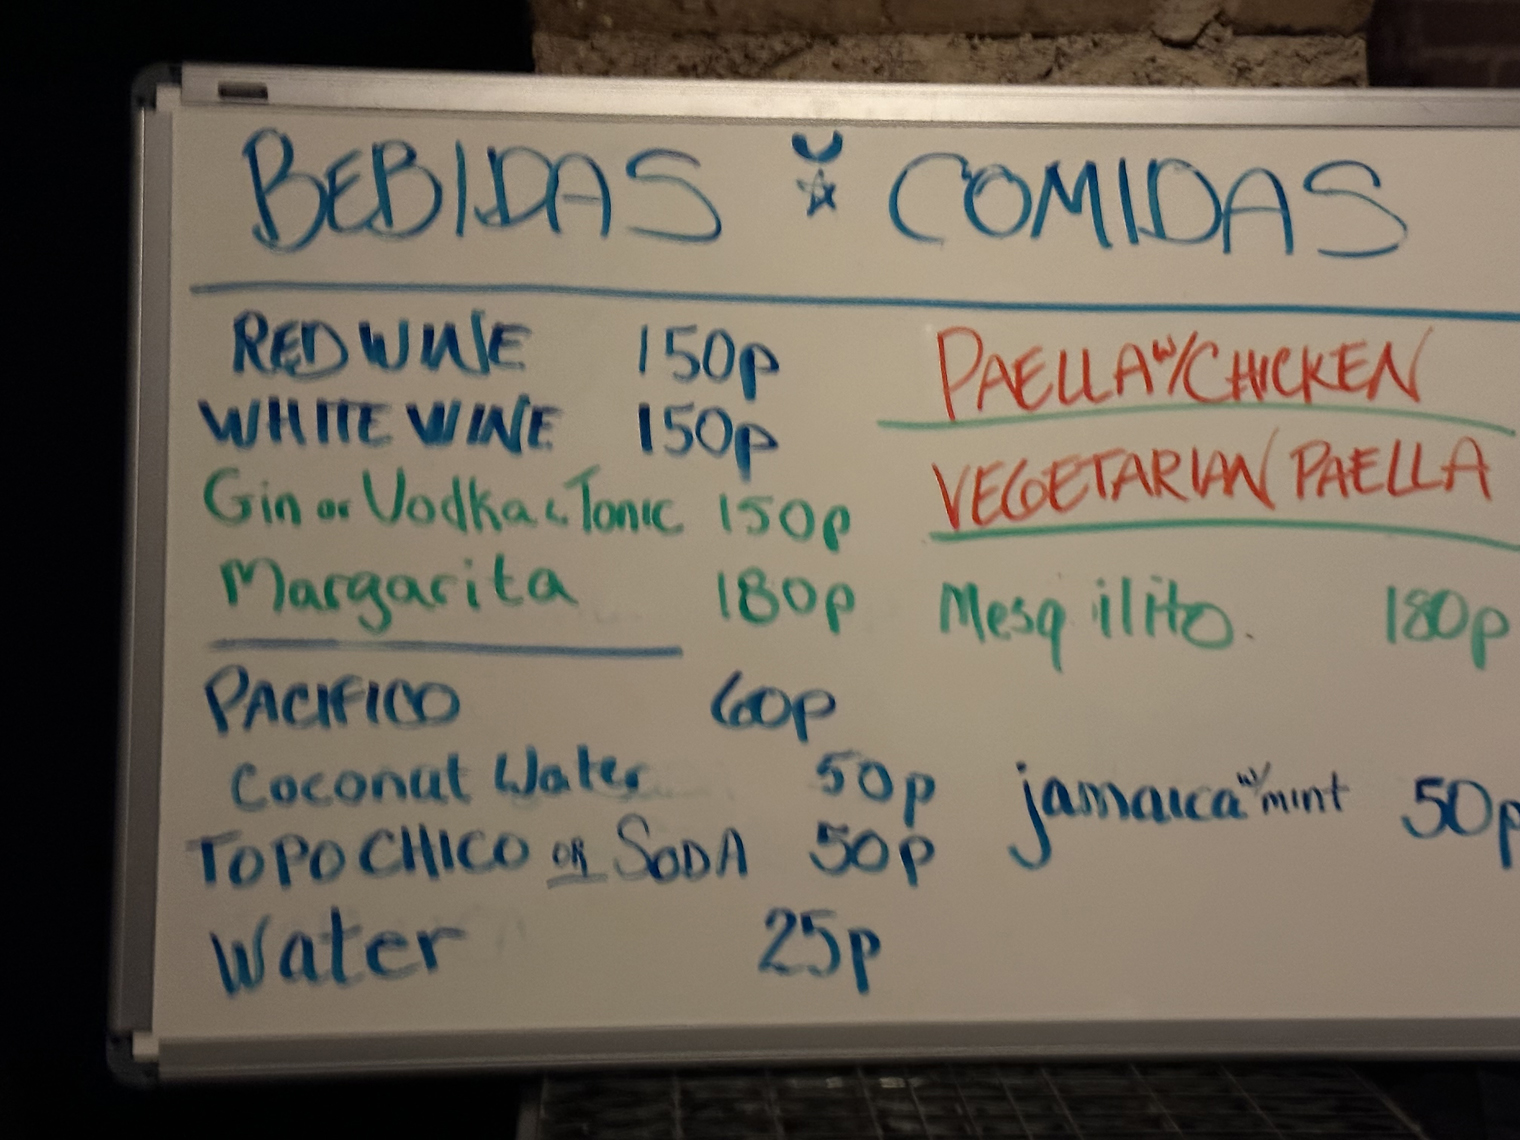 BEBIDAS COMIDAS
RED WINE 150p
PAELLA w/CHICKEN
WHITE WINE 150p
VEGETARIAN PAELLA
Gin or Vodka & Tonic 150p
Margarita 180p
Mesqilito. 180p
PACIFICO 60p
Coconut Water 50p
jamaica w/ mint 50p
TOPO CHICO OR SODA 50p
Water 25p